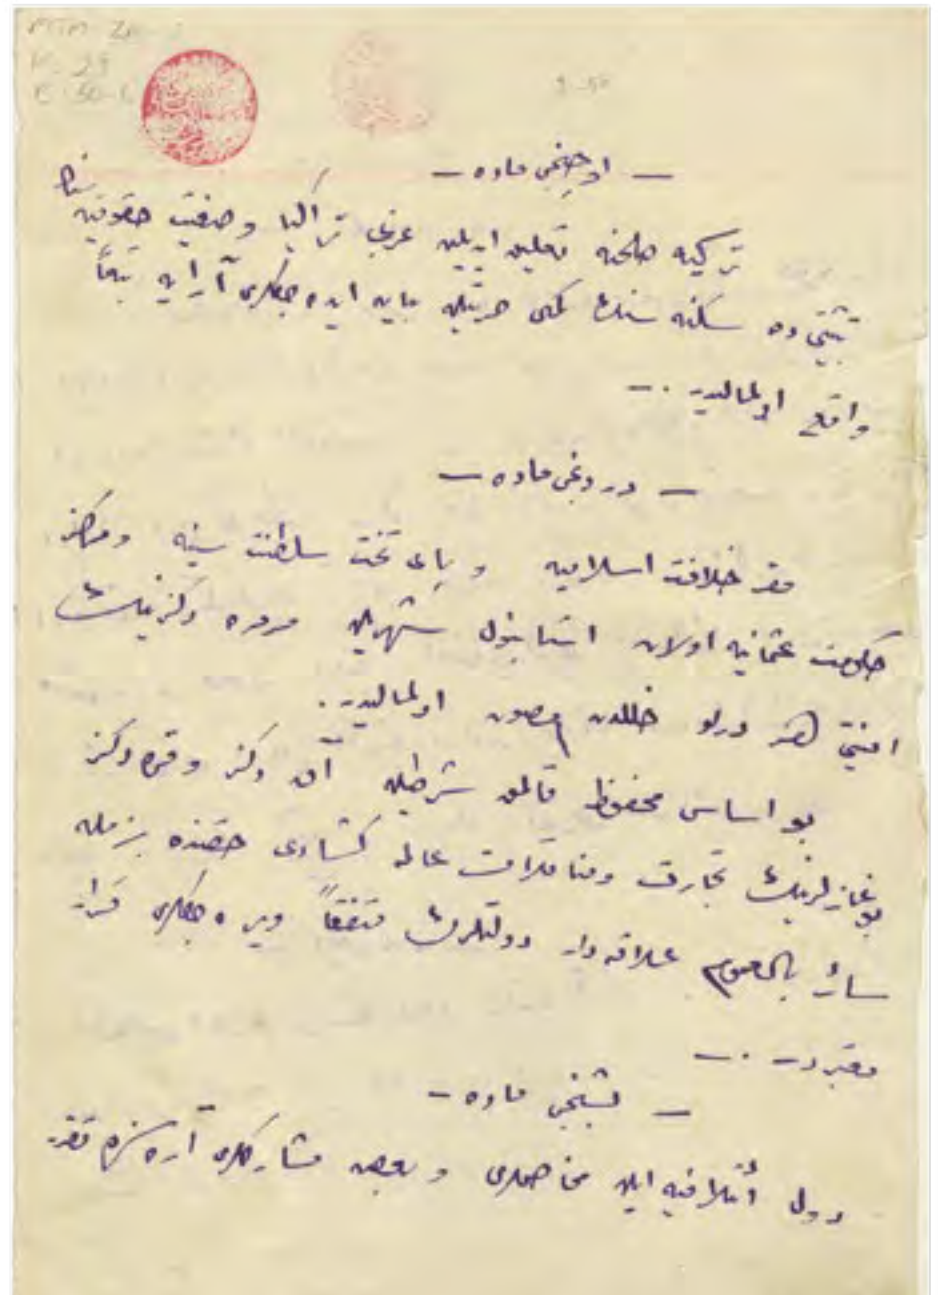 — اوچنجی ماده —
تركیه صلحنه تعلیق ایدیلن غربی تراكیا وضعیت حقوقیه سنك
تثبیتی ده سكنه سنك كمال حریتله بیان ایده جكلری آرایه تبعاً
واقع اولمالیدر .—
— دردنجی ماده —
مقر خلافت اسلامیه و پای تخت سلطنت سنیه و مركز
حكومت عثمانیه اولان استانبول شهریله مرمره دكزینك
امنیتی هر درلو خللدن مصون اولمالیدر .
بو اساس محفوظ قالمق شرطیله آق دكز و قره دكز
بوغازلرینك تجارت و مناقلات عالمه كشادی حقنده بزمله
سائر بالعموم علاقه دار دولتلرك متفقاً ویره جكلری قرار
معتبردر .—
— بشنجی ماده —
دول ائتلافیه ایله مخاصملری و بعض مشاركلری آره سنده تقرر